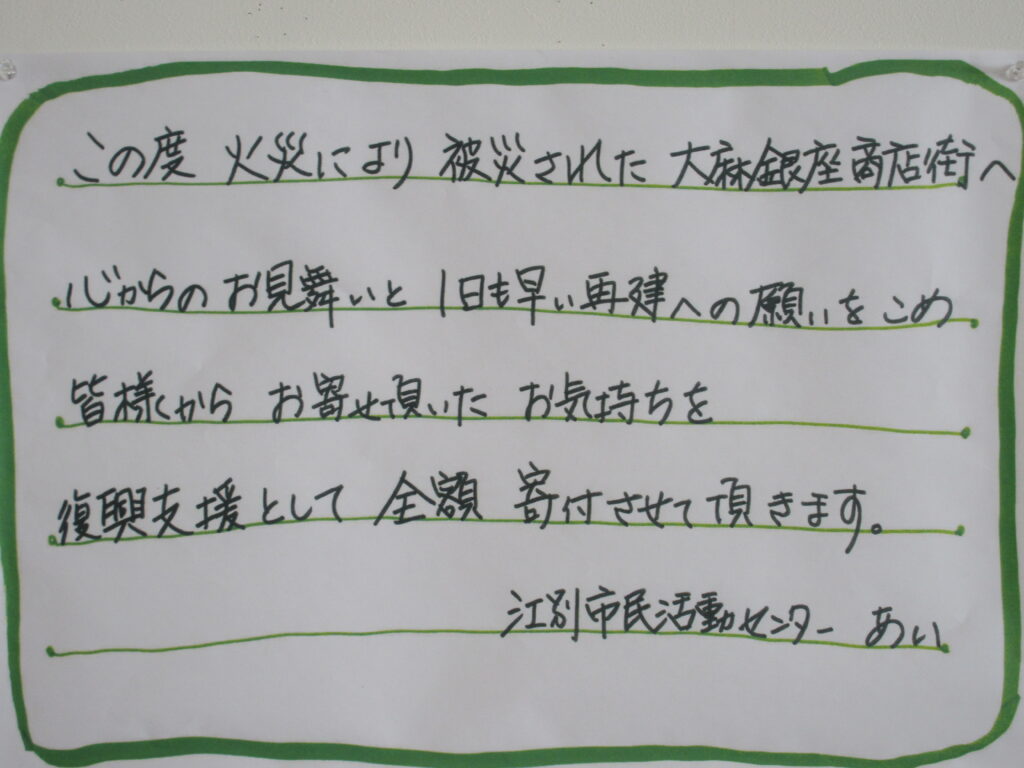 この度 火災により 被災された 大麻銀座商店街へ
心からの お見舞いと 1日も早い再建への願いをこめ
皆様から お寄せ頂いた お気持ちを
復興支援として 全額 寄付させて頂きます。
江別市民活動センター あい